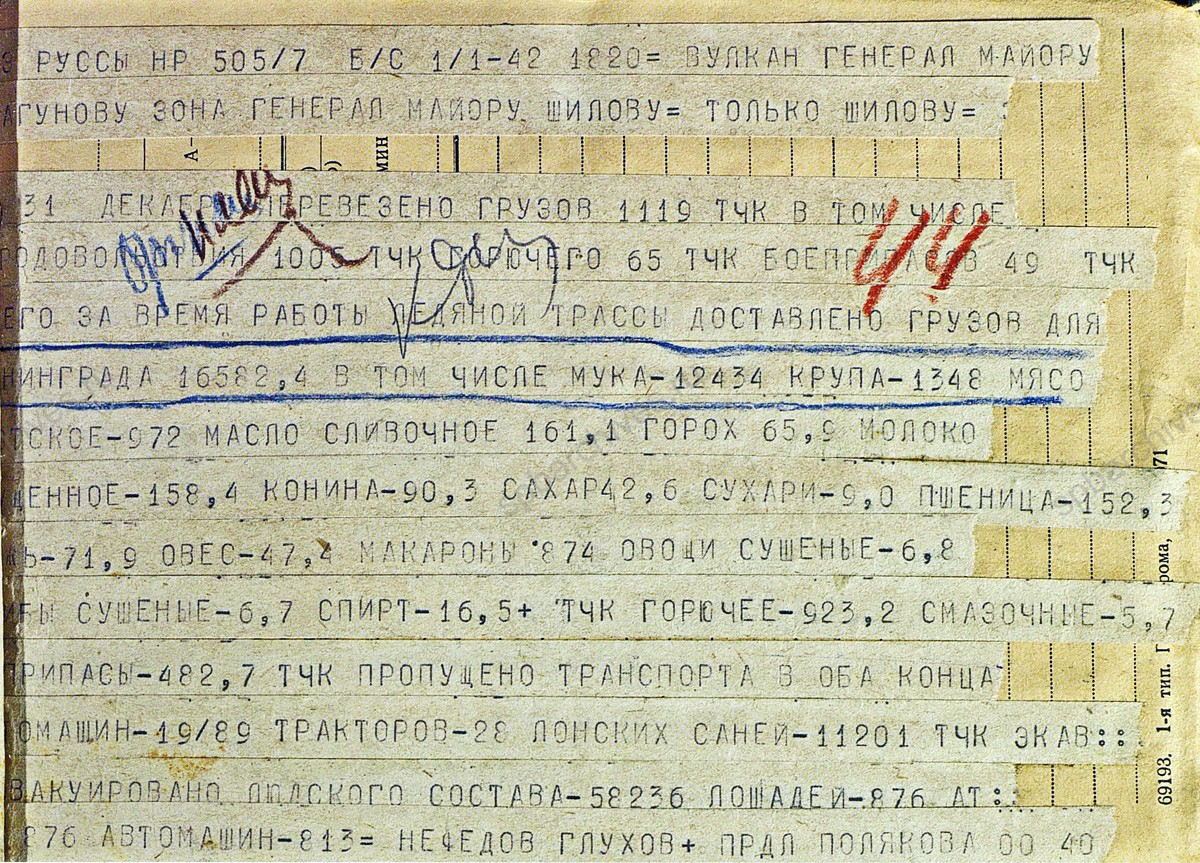 РУССЫ НР 505/7 Б/С 1/1-42 1820= ВУЛКАН ГЕНЕРАЛ МАЙОРУ
АГУНОВУ ЗОНА ГЕНЕРАЛ МАЙОРУ ШИЛОВУ= ТОЛЬКО ШИЛОВУ=
31 ДЕКАБРЯ ПЕРЕВЕЗЕНО ГРУЗОВ 1119 ТЧК В ТОМ ЧИСЛЕ
44
ОДОВОЛЬСТВИЯ 1005 ТЧК ГОРЮЧЕГО 65 ТЧК БОЕПРИПАСОВ 49 ТЧК
ЕГО ЗА ВРЕМЯ РАБОТЫ ЛЕДЯНОЙ ТРАССЫ ДОСТАВЛЕНО ГРУЗОВ ДЛЯ
НИНГРАДА 16582,4 В ТОМ ЧИСЛЕ МУКА-12434 КРУПА-1348 МЯСО
ТСКОЕ-972 МАСЛО СЛИВОЧНОЕ 161,1 ГОРОХ 65,9 МОЛОКО
ЩЕННОЕ-158,4 КОНИНА-90,3 САХАР42,6 СУХАРИ-9,0 ПШЕНИЦА-152,3
Ь-71,9 ОВЕС-47,4 МАКАРОНЫ 874 ОВОЩИ СУШЕНЫЕ-6,8
ИБЫ СУШЕНЫЕ-6,7 СПИРТ-16,5+ ТЧК ГОРЮЧЕЕ-923,2 СМАЗОЧНЫЕ-5,7
РИПАСЫ-482,7 ТЧК ПРОПУЩЕНО ТРАНСПОРТА В ОБА КОНЦА
ОМАШИН-19/89 ТРАКТОРОВ-28 ЛОНСКИХ САНЕЙ-11201 ТЧК ЭКАВ::
ВАКУИРОВАНО ЛЮДСКОГО СОСТАВА-58236 ЛОШАДЕЙ-876 АТ:
876 АВТОМАШИН-813= НЕФЕДОВ ГЛУХОВ+ ПРДЛ ПОЛЯКОВА 00 40
69193. 1-я тип. Г рома, 71